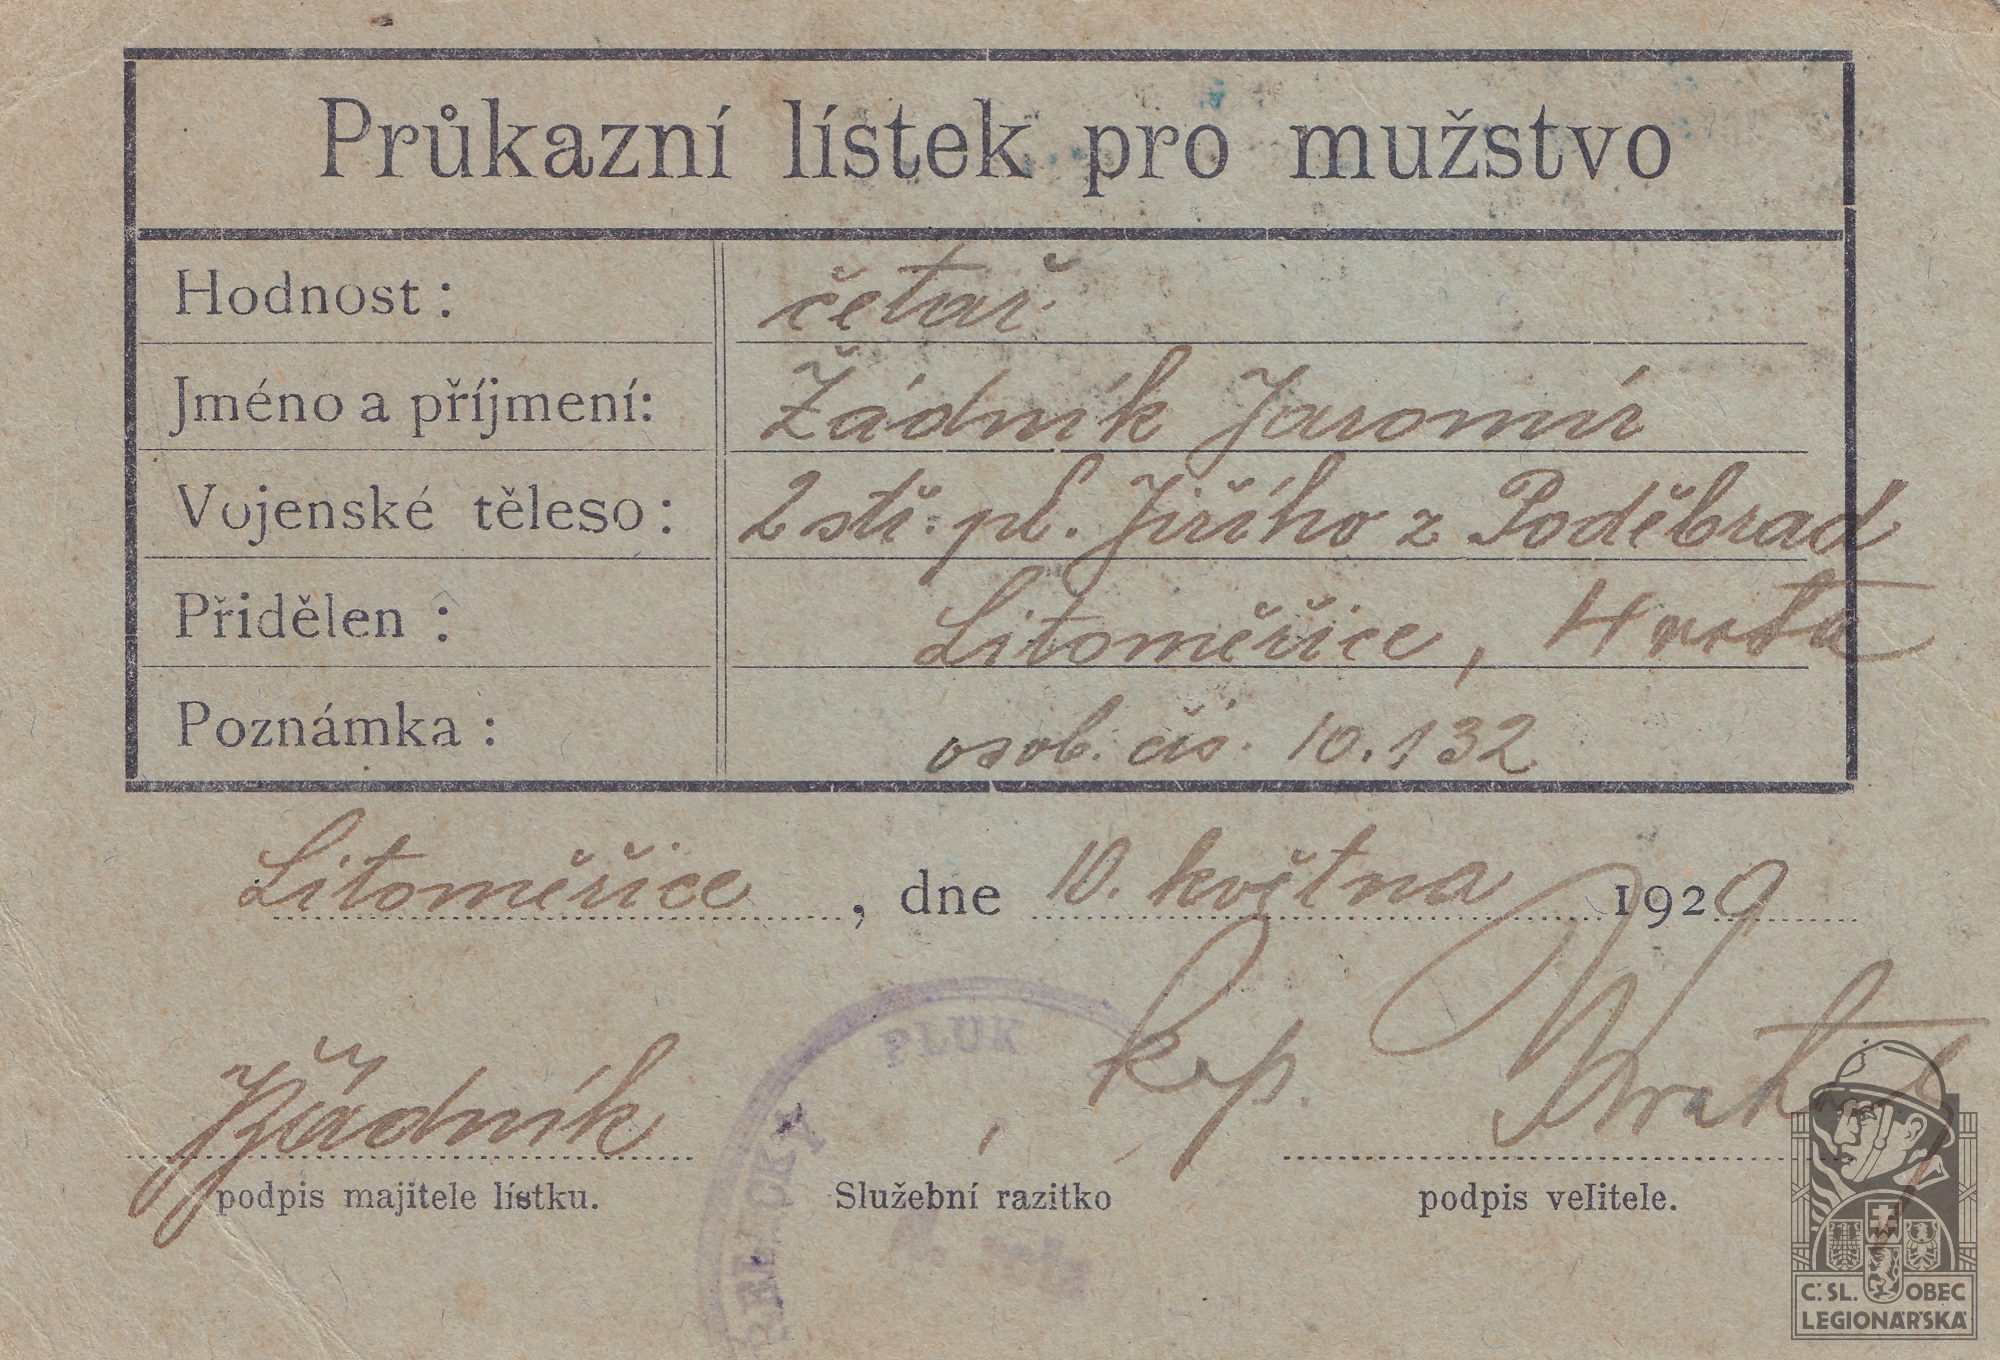 Průkazní lístek pro mužstvo
Hodnost: četař
Jméno a příjmení: Žádník Jaromír
Vojenské těleso: 2 stř. pl. Jiřího z Poděbrad
Přidělen: Litoměřice, 4 rota
Poznámka: osob. čís. 10.132
Litoměřice, dne 10. května 1920
Žádník kap.
podpis majitele lístku. Služební razítko podpis velitele.
PLUK
ČSL. OBEC
LEGIONÁŘSKÁ